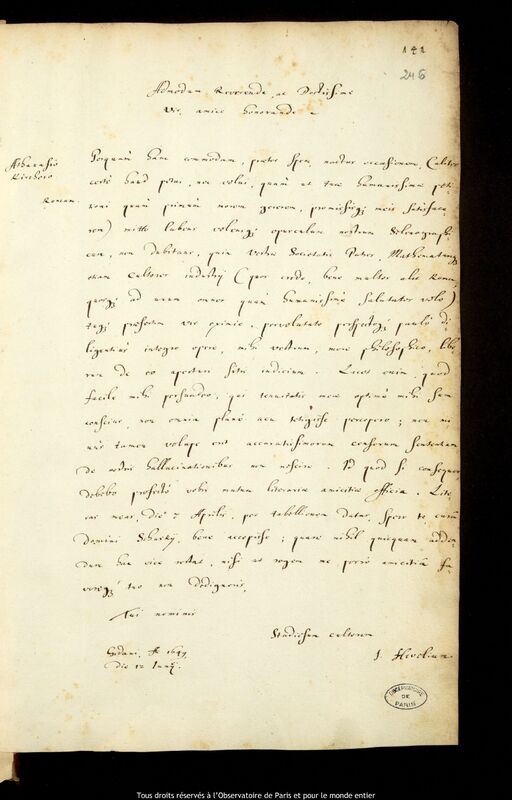 141
246
Admodum Reverende, ac Doctissime
Vir, amice honorande
Athanasio
Kirchero
Romam.
Postquam hanc commodam, praeter spem, nactus occasionem,
certe haud potui, nec volui, quam ut tuae humanissimae peti
tioni quam primum morem gererem, promissisque meis satisface-
rem) mitto lubens volensque opusculum nostrum Selenographi-
cum, non dubitans, quin vestrae Societatis Patres, Mathematum
etiam cultores industrii (quos credo, bene multos alit Roma,
quosque ad unum omnes quam humanissime salutatos volo)
teque praesertim vir eximie, pervolutato perspectoque paulo di
ligentius integro opere, mihi vestrum, more philosophico, libe
rum de eo aperturi sitis iudicium. Licet enim, quod
facile mihi persuadeo, qui tenuitatis meae optime mihi sum
conscius, non omnia plane acu tetigisse percepero; non mi
nus tamen volupe erit accuratissimorum censorum sententiam
de meis hallucinationibus non nescire. Id quod si consequar
debebo profecto vobis mutua literariae amicitiae officia. Lite-
ras meas, die 7 Aprilis, per tabellionem datas, spero te
Domini bene accepisse; quare nihil quicquam adden-
dum hac vice restat, nisi ut rogem me porro amicitia fa-
voreque tuo non dedigneris,
Tui nominis
Studiosum cultorem
Gedani, Ao 1647
die 12 Junii.
J. Hevelium
OBSERVATOIRE
DE
PARIS
Tous droits réservés à l'Observatoire de Paris et pour le monde entier